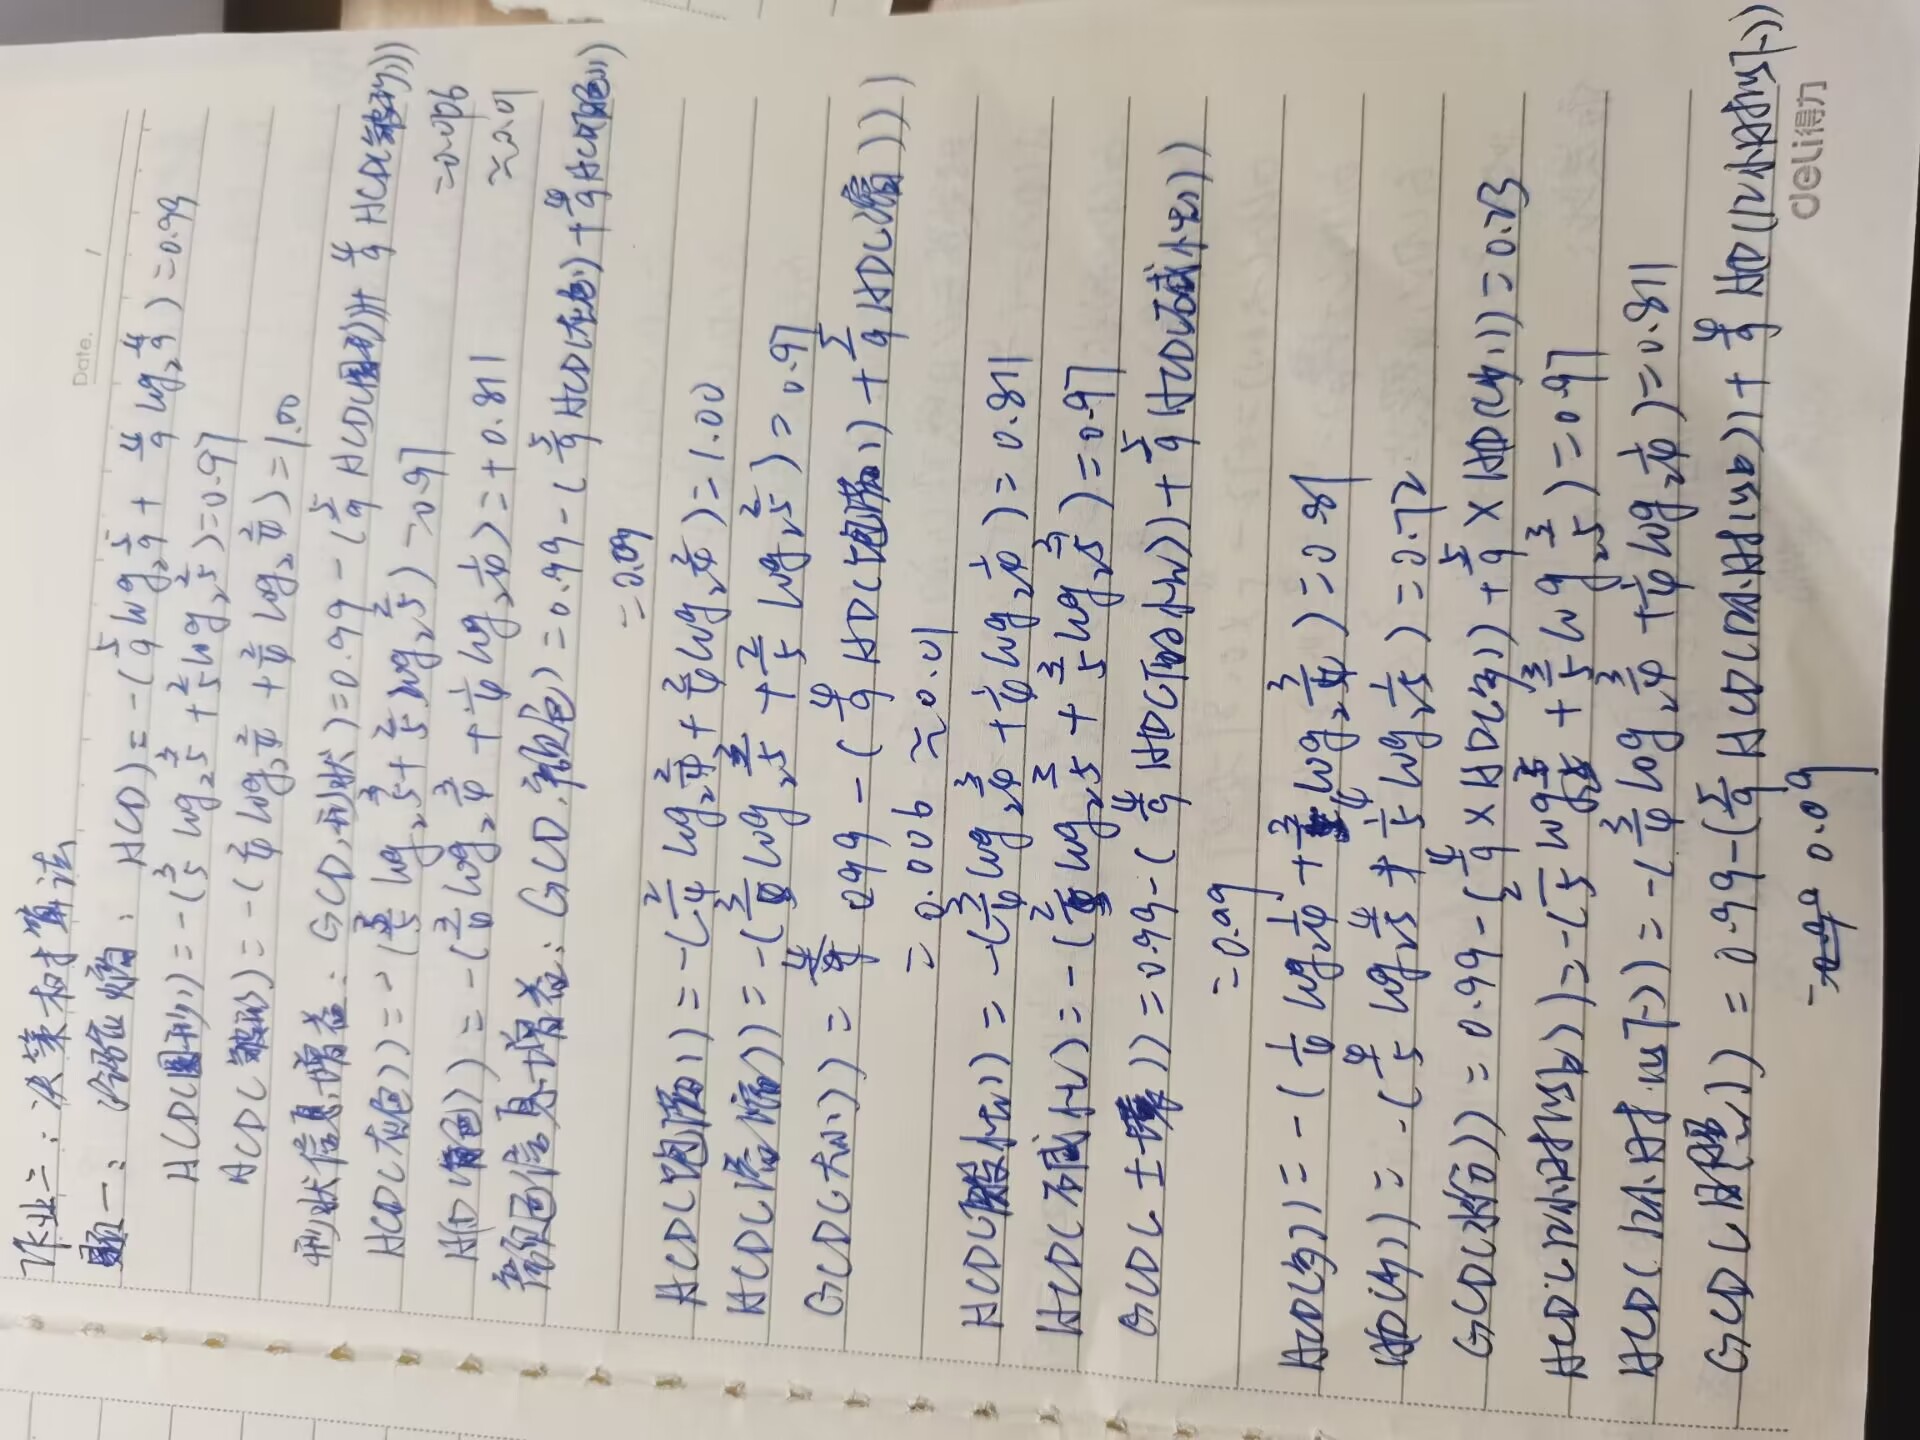 Date.
作业二：决策树算法
题一：经验熵：H(D)=-(5/9 log₂5/9 + 4/9 log₂4/9)=0.99
H(D(圆形))=-(3/5 log₂3/5+2/5 log₂2/5)=0.97
H(D(皱形))=-(2/4 log₂2/4+2/4 log₂2/4)=1.00
形状信息增益：G(D,形状)=0.99-(5/9 H(D(圆形))+4/9 H(D(皱形)))
=0.006
≈0.01
H(D(灰色))=-(3/5 log₂3/5+2/5 log₂2/5)=0.97
H(D(色))=-(3/4 log₂3/4+1/4 log₂1/4)=+0.811
颜色信息增益：G(D,颜色)=0.99-(5/9 H(D(灰色))+4/9 H(D(色)))
=0.09
H(D(饱满))=-(2/4 log₂2/4+2/4 log₂2/4)=1.00
H(D())=-(3/5 log₂3/5+2/5 log₂2/5)=0.97
G(D(大小))=0.99-(4/9 H(D(饱满))+5/9 H(D()))
=0.006≈0.01
H(D(酸性))=-(3/4 log₂3/4+1/4 log₂1/4)=0.811
H(D(不))=-(2/5 log₂2/5+3/5 log₂3/5)=0.97
G(D(土壤))=0.99-(4/9 H(D())+5/9 H(D()))
=0.09
H(D(多))=-(1/4 log₂1/4+3/4 log₂3/4)=0.81
H(D(少))=-(4/5 log₂4/5+1/5 log₂1/5)=0.72
G(D(水份))=0.99-(4/9×H(D(多))+5/9×H(D(少)))=0.23
H(D(12小时以上))=-(2/5 log₂2/5+3/5 log₂3/5)=0.97
H(D(12小时以下))=-(3/4 log₂3/4+1/4 log₂1/4)=0.811
G(D(日照))=0.99-(5/9 H(D(12小时以上))+4/9 H(D(12小时以下)))
=0.09
deli得力